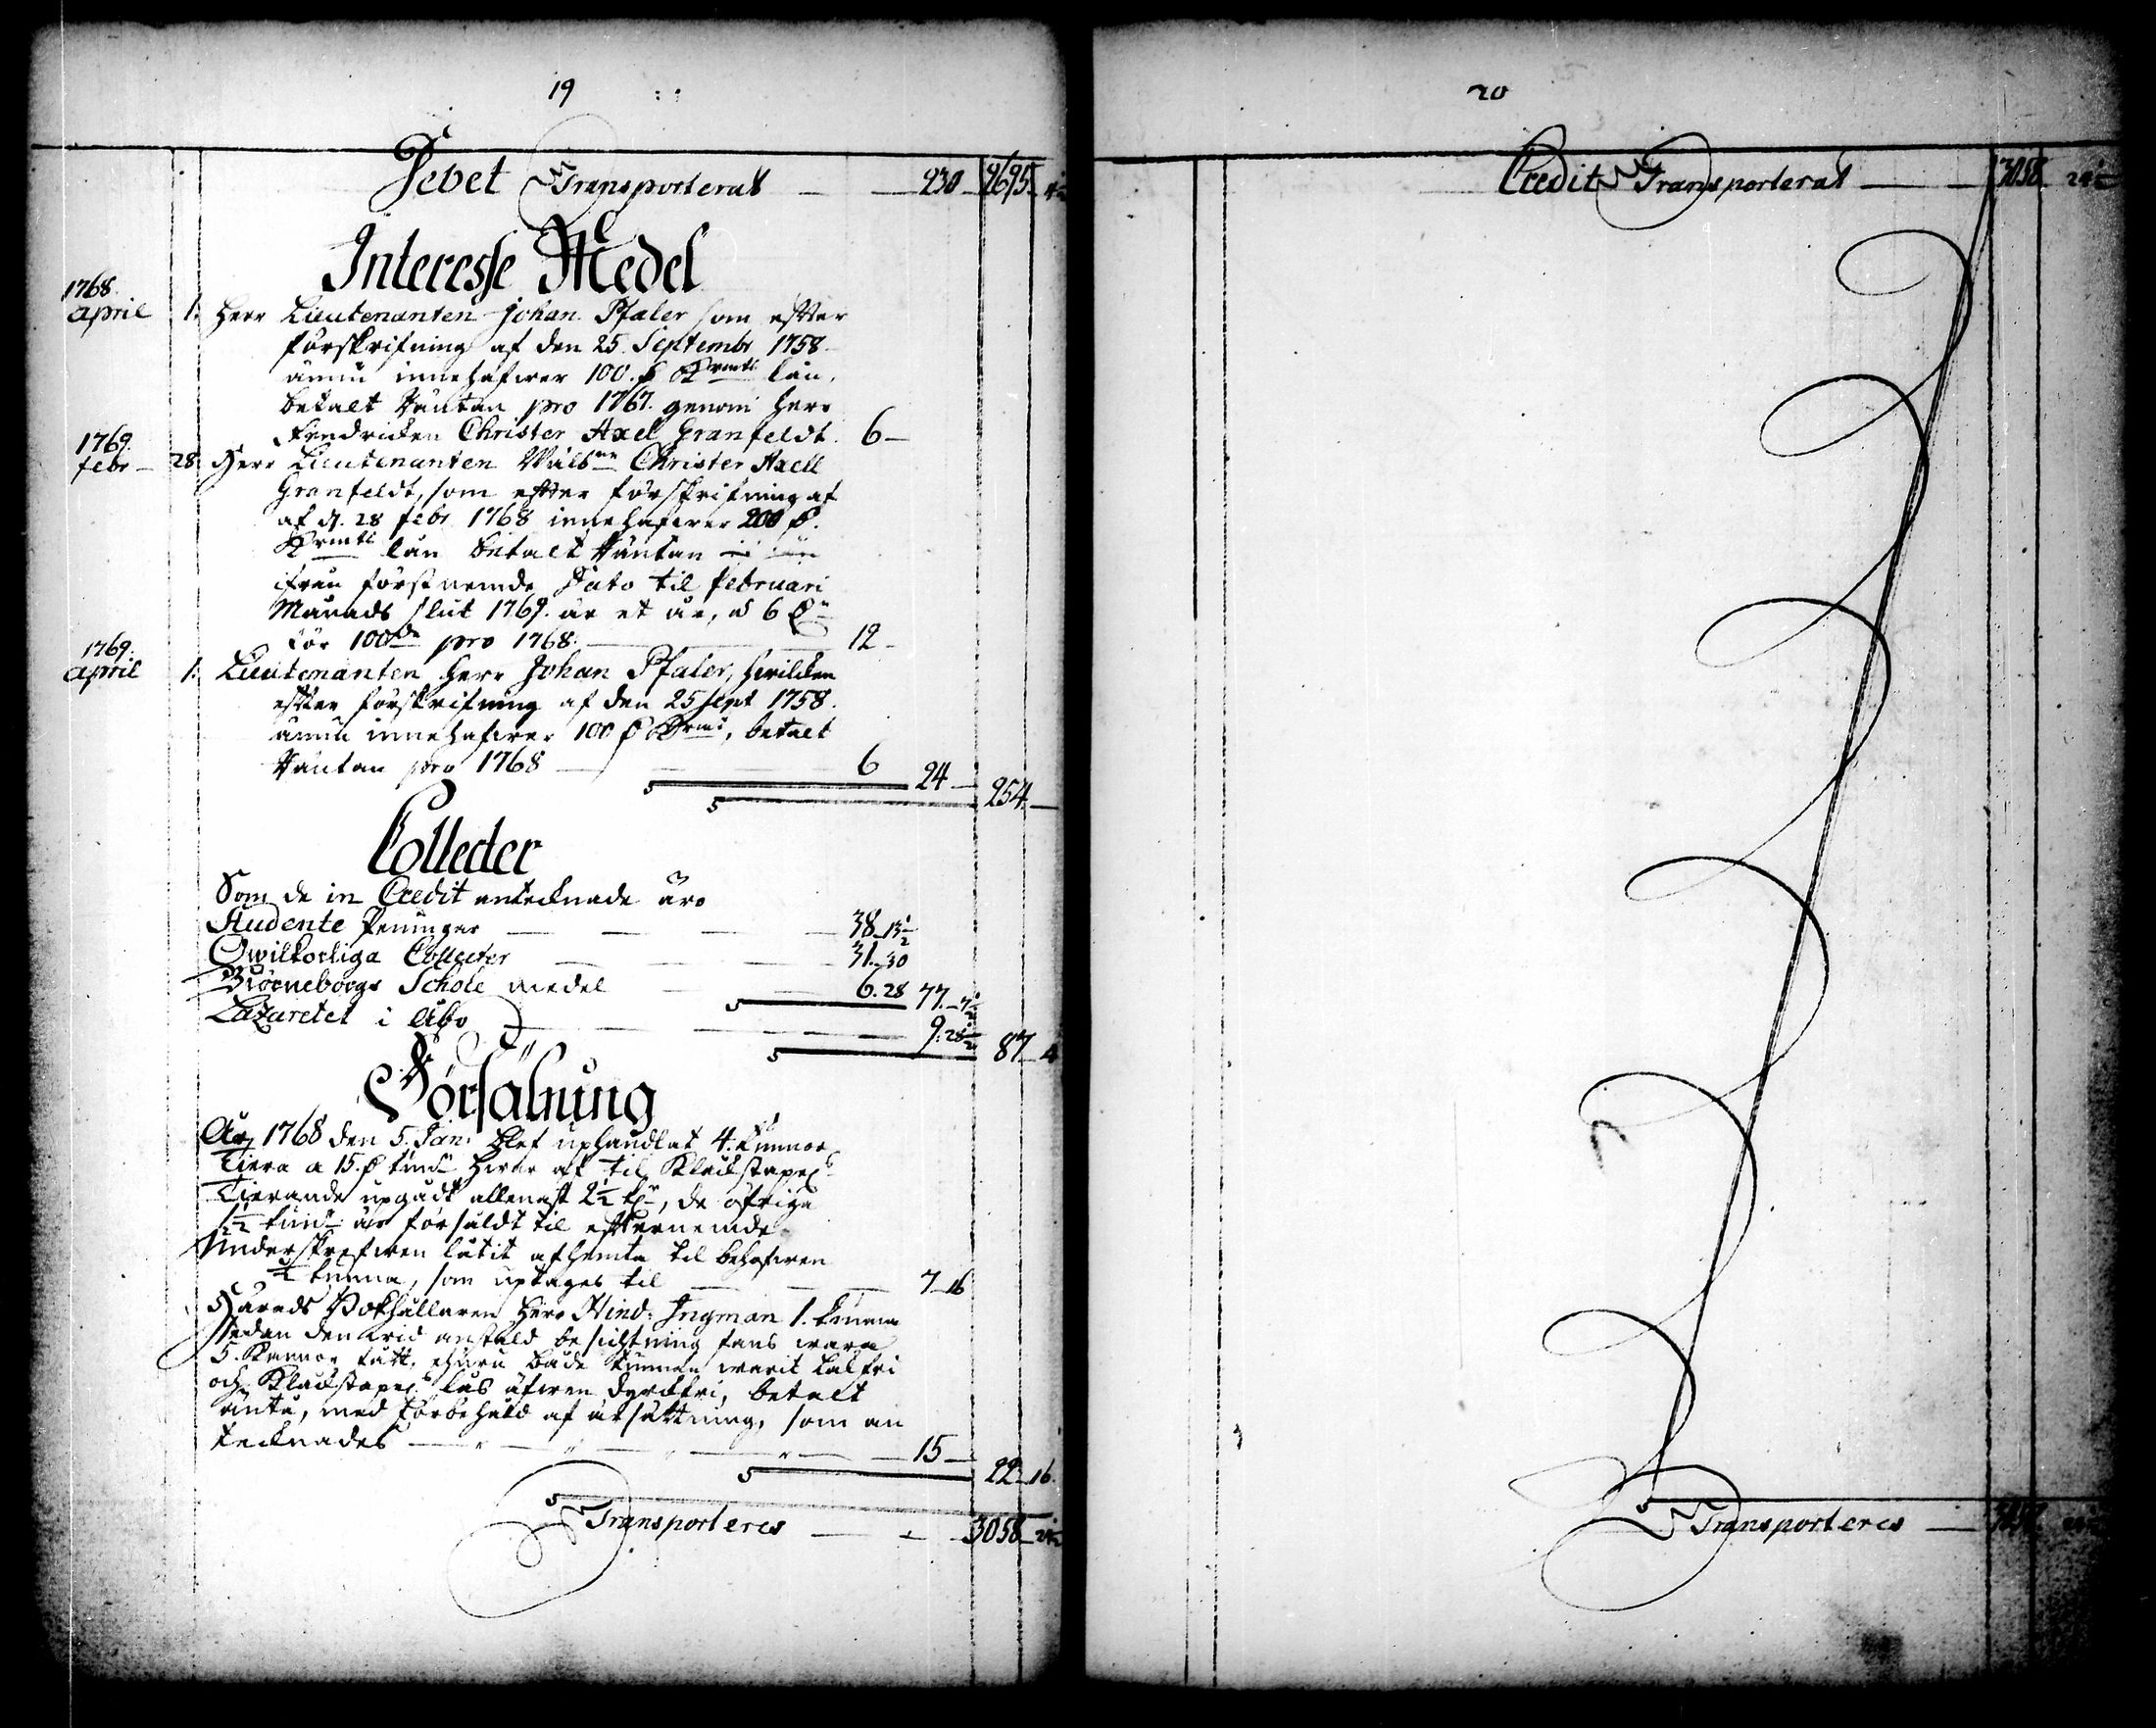 19
Debet Transporterat — 230 — 2695
Interesse Medel
1768.
April 1. Herr Lieutenanten Johan Pfaler som efter
förskrifning af den 25 Septembr 1758.
ännu innehafwer 100. lån,
betalt Räntan pro 1767. genom Herr
Fendricken Christer Axel Granfeldt. 6 —
1769.
febr — 28 Herr Lieutenanten Christer Axell
Granfeldt, som efter förskrifning af
af d. 28 febr 1768 innehafwer 200
lån betalt Räntan
ifrån förstnemde Dato til Februari
Månads slut 1769. är et år, á 6
för 100de pro 1768. — 12 —
1769.
April 1. Lieutenanten Herr Johan Pfaler, hwilcken
efter förskrifning af den 25 Sept 1758.
ännu innehafwer 100, betalt
Räntan pro 1768 — 6 24 —
254. —
Collecter
Som de in Credit antecknade äro
Studente Peninger — 38. 13 1/2
Owilkorliga Collecter — 31. 30
Biörneborgs Schole medel — 6. 28 77. 7 1/2
Lazaretet i Åbo — 9. 28 1/2
87 4
Försälning
År 1768 den 5. Jan: blef uphandlat 4. tunnor
Tiera a 15. hwar af til Klockstapel
Tierande upgådt allenast 2 1/2, de öfriga
1 1/2 tun är försåldt til efternemde
Underskrefwen låtit afhemta til behofwen
1/2 tunna, som uptages til — 7 16
Härads Bokhållaren Herr Hind: Ingman 1. tunna
sedan den wid anstald besichtning fans wara
5. Kannor, ehuru både tunnan warit
och Klockstapel, betalt
änta, med förbehåld af afsättning, som an
tecknades — 15 —
22 16.
Transporteres — 3058
20
Credit Transporterat — 3058
Transporteres —